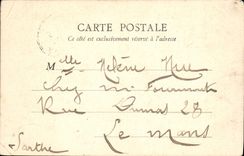 CARTE POSTALE
Ce côté est exclusivement réservé à l'adresse
Mlle Hélène
chez Mr
Rue Dumas 28
Le Mans
Sarthe